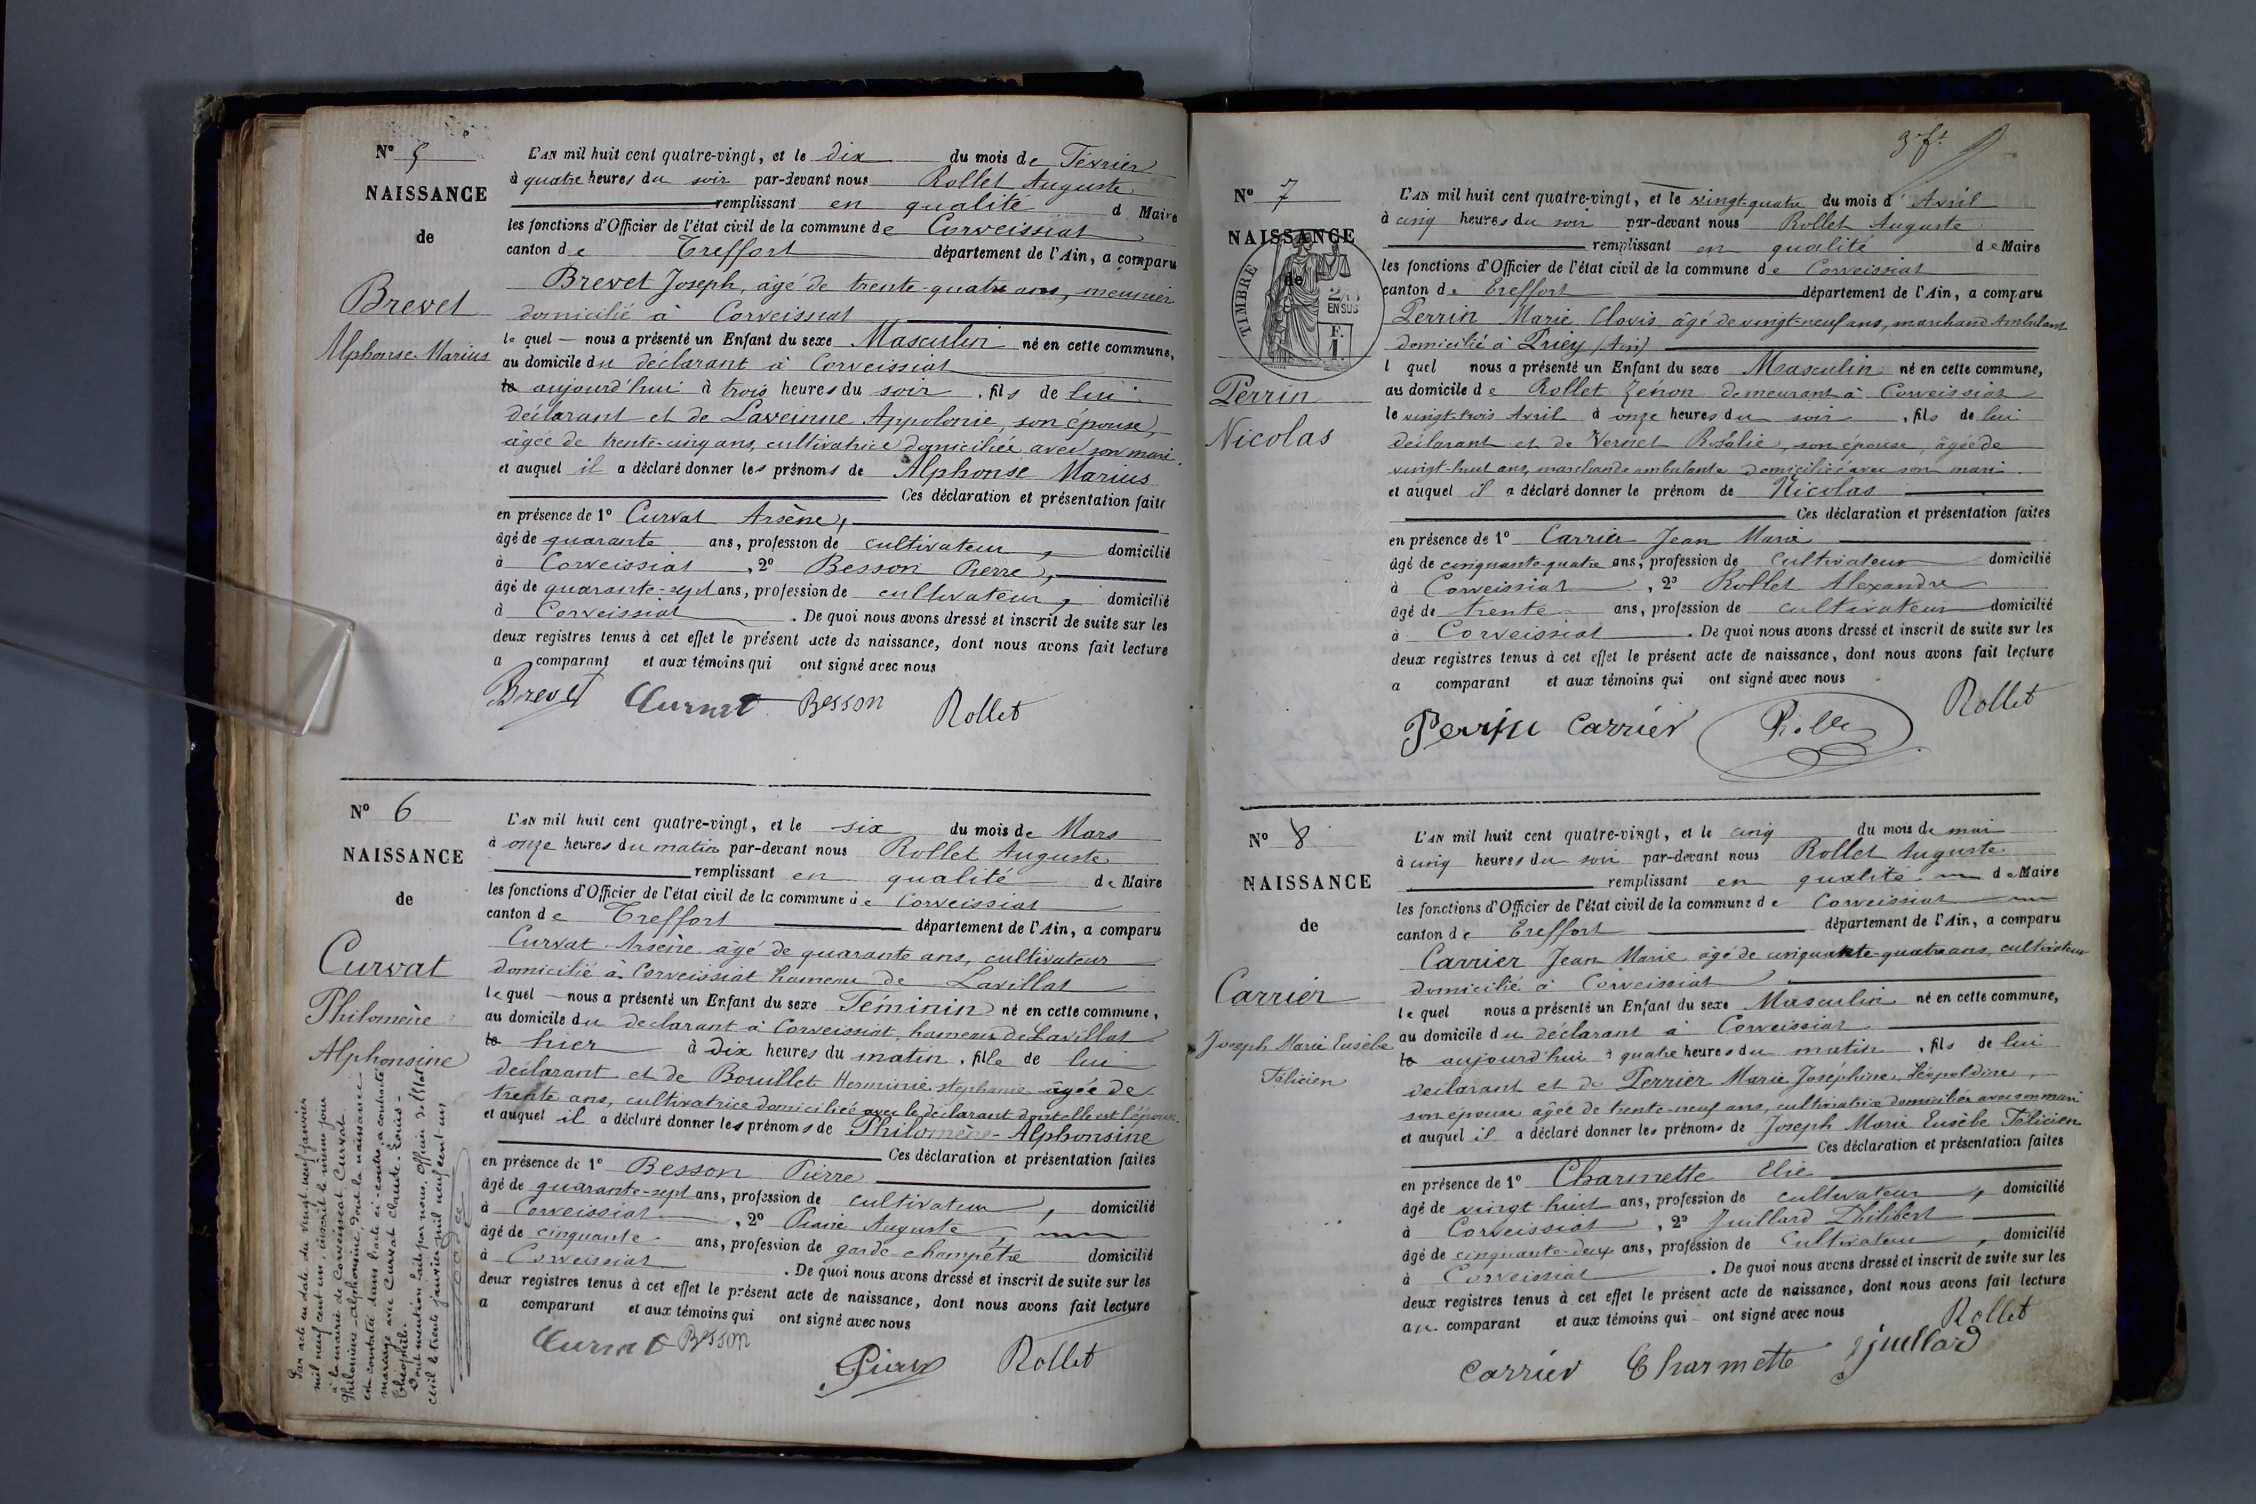 N° 5
NAISSANCE
de
Brevet
Alphonse Marius
L'AN mil huit cent quatre-vingt, et le dix du mois de Février
à quatre heures du soir par-devant nous Rollet Auguste
remplissant en qualité d Maire
les fonctions d'Officier de l'état civil de la commune de Corveissiat
canton de Treffort département de l'Ain, a comparu
Brevet Joseph, âgé de trente-quatre ans, meunier
domicilié à Corveissiat
lequel — nous a présenté un Enfant du sexe Masculin né en cette commune,
au domicile du déclarant à Corveissiat
le aujourd'hui à trois heures du soir, fils de lui
déclarant et de Laveinne Appolonie, son épouse,
âgée de trente-cinq ans, cultivatrice domiciliée avec son mari.
et auquel il a déclaré donner les prénoms de Alphonse Marius
Ces déclaration et présentation faites
en présence de 1° Curvat Arsène,
âgé de quarante ans, profession de cultivateur, domicilié
à Corveissiat, 2° Besson Pierre,
âgé de quarante-sept ans, profession de cultivateur, domicilié
à Corveissiat. De quoi nous avons dressé et inscrit de suite sur les
deux registres tenus à cet effet le présent acte de naissance, dont nous avons fait lecture
a comparant et aux témoins qui ont signé avec nous
Brevet Curvat Besson Rollet
N° 6
NAISSANCE
de
Curvat
Philomène
Alphonsine
Par acte en date du vingt-neuf janvier
mil neuf cent un, inscrit le même jour
à la mairie de Corveissiat Curvat
Philomène-Alphonsine, dont la naissance
est constatée dans l'acte ci-contre a contracté
mariage avec Curvat Claude-Louis-
Théophile.
Dont mention faite par nous, officier de l'état
civil le trente janvier mil neuf cent un
L'AN mil huit cent quatre-vingt, et le six du mois de Mars
à onze heures du matin par-devant nous Rollet Auguste
remplissant en qualité de Maire
les fonctions d'Officier de l'état civil de la commune de Corveissiat
canton de Treffort département de l'Ain, a comparu
Curvat Arsène âgé de quarante ans, cultivateur
domicilié à Corveissiat hameau de Lavillat
lequel — nous a présenté un Enfant du sexe Féminin né en cette commune,
au domicile du déclarant à Corveissiat, hameau de Lavillat
le hier à dix heures du matin, fille de lui
déclarant et de Bouillet Herminie Stephanie âgée de
trente ans, cultivatrice domiciliée avec le déclarant dont elle est l'épouse.
et auquel il a déclaré donner les prénoms de Philomène-Alphonsine
Ces déclaration et présentation faites
en présence de 1° Besson Pierre
âgé de quarante-sept ans, profession de cultivateur, domicilié
à Corveissiat, 2° Auguste
âgé de cinquante ans, profession de garde champêtre domicilié
à Corveissiat. De quoi nous avons dressé et inscrit de suite sur les
deux registres tenus à cet effet le présent acte de naissance, dont nous avons fait lecture
a comparant et aux témoins qui ont signé avec nous
Curvat Besson
Rollet
3 ft.
N° 7
NAISSANCE
de
TIMBRE
EN SUS
Perrin
Nicolas
L'AN mil huit cent quatre-vingt, et le vingt-quatre du mois d'Avril
à cinq heures du soir par-devant nous Rollet Auguste
remplissant en qualité de Maire
les fonctions d'Officier de l'état civil de la commune de Corveissiat
canton de Treffort département de l'Ain, a comparu
Perrin Marie Clovis âgé de vingt-neuf ans, marchand ambulant
domicilié à Priey (Ain)
l quel nous a présenté un Enfant du sexe Masculin né en cette commune,
au domicile de Rollet Zénon demeurant à Corveissiat
le vingt-trois Avril à onze heures du soir, fils de lui
déclarant et de Vernet Rosalie, son épouse, âgée de
vingt-huit ans, marchande ambulante domiciliée avec son mari.
et auquel il a déclaré donner le prénom de Nicolas
Ces déclaration et présentation faites
en présence de 1° Carrier Jean Marie
âgé de cinquante-quatre ans, profession de cultivateur domicilié
à Corveissiat, 2° Rollet Alexandre
âgé de trente ans, profession de cultivateur domicilié
à Corveissiat. De quoi nous avons dressé et inscrit de suite sur les
deux registres tenus à cet effet le présent acte de naissance, dont nous avons fait lecture
a comparant et aux témoins qui ont signé avec nous
Perrin Carrier Rollet
N° 8
NAISSANCE
de
Carrier
Joseph Marie Eusèbe
Félicien
L'AN mil huit cent quatre-vingt, et le cinq du mois de mai
à cinq heures du soir par-devant nous Rollet Auguste
remplissant en qualité de Maire
les fonctions d'Officier de l'état civil de la commune de Corveissiat
canton de Treffort département de l'Ain, a comparu
Carrier Jean Marie âgé de cinquante-quatre ans, cultivateur
domicilié à Corveissiat
lequel nous a présenté un Enfant du sexe Masculin né en cette commune,
au domicile du déclarant à Corveissiat
le aujourd'hui à quatre heures du matin, fils de lui
déclarant et de Perrier Marie Joséphine Léopoldine,
son épouse âgée de trente-neuf ans, cultivatrice domiciliée avec son mari
et auquel il a déclaré donner les prénoms de Joseph Marie Eusèbe Félicien
Ces déclaration et présentation faites
en présence de 1° Charmette Elie
âgé de vingt huit ans, profession de cultivateur, domicilié
à Corveissiat, 2° Juillard Philibert
âgé de cinquante-deux ans, profession de cultivateur, domicilié
à Corveissiat. De quoi nous avons dressé et inscrit de suite sur les
deux registres tenus à cet effet le présent acte de naissance, dont nous avons fait lecture
au comparant et aux témoins qui ont signé avec nous
Rollet
Carrier Charmette Juillard